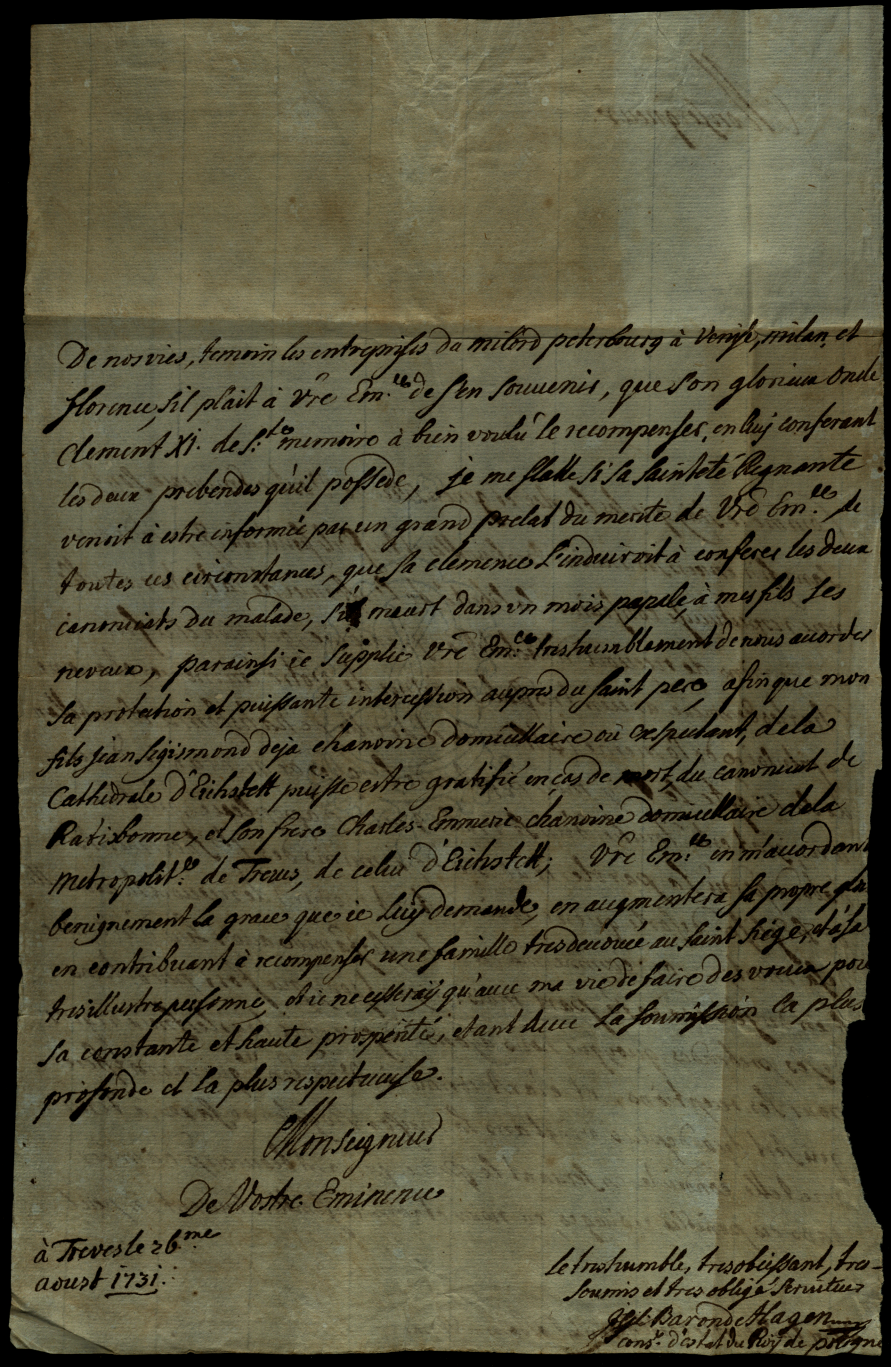 De nos vies, temoin les entreprises du milord peterbourg à Venise, milan, et
florence, s'il plait à Vre Em.ce de s'en souvenir, que son glorieux oncle
Clement XI. de S.te memoire à bien voulu le recompenser, en luy conferant
les deux prebendes qu'il possede, je me flatte si sa sainteté Regnante
venoit à estre informée par un grand prelat du merite de Vre Em.ce, de
toutes ces circonstances, que sa clemence l'induiroit à conferer les deux
canonicats du malade, s'il meurt dans un mois papale, à mes fils ses
neveux, parainsi je supplie Vre Em.ce treshumblement de nous accorder
sa protection et puissante intercession aupres du saint pere, afinque mon
fils Jean Sigismond deja chanoine domicellaire ou expectant, de la
Cathedrale d'Eichstett puisse estre gratifié en cas de mort, du canonicat de
Ratisbonne, et son frere Charles Emmeric chanoine domicellaire de la
metropolit.ne de Treves, de celui d'Eichstett; Vre Em.ce en m'accordant
benignement la grace que je luy demande, en augmentera sa propre
en contribuant à recompenser une famille tres devouée au saint siége, et à sa
tres illustre personne, et je ne cesseray qu'avec ma vie de faire des voeux pou
sa constante et haute prosperité, etant avec la soumission la plus
profonde et la plus respectueuse.
Monseigneur
De Vostre Eminence
à Treves le 26me
aoust 1731.
le treshumble, tres obeissant, tres-
soumis et tres obligé serviteur
Baron de Hagen
cons.r d'estat du Roy de pologne